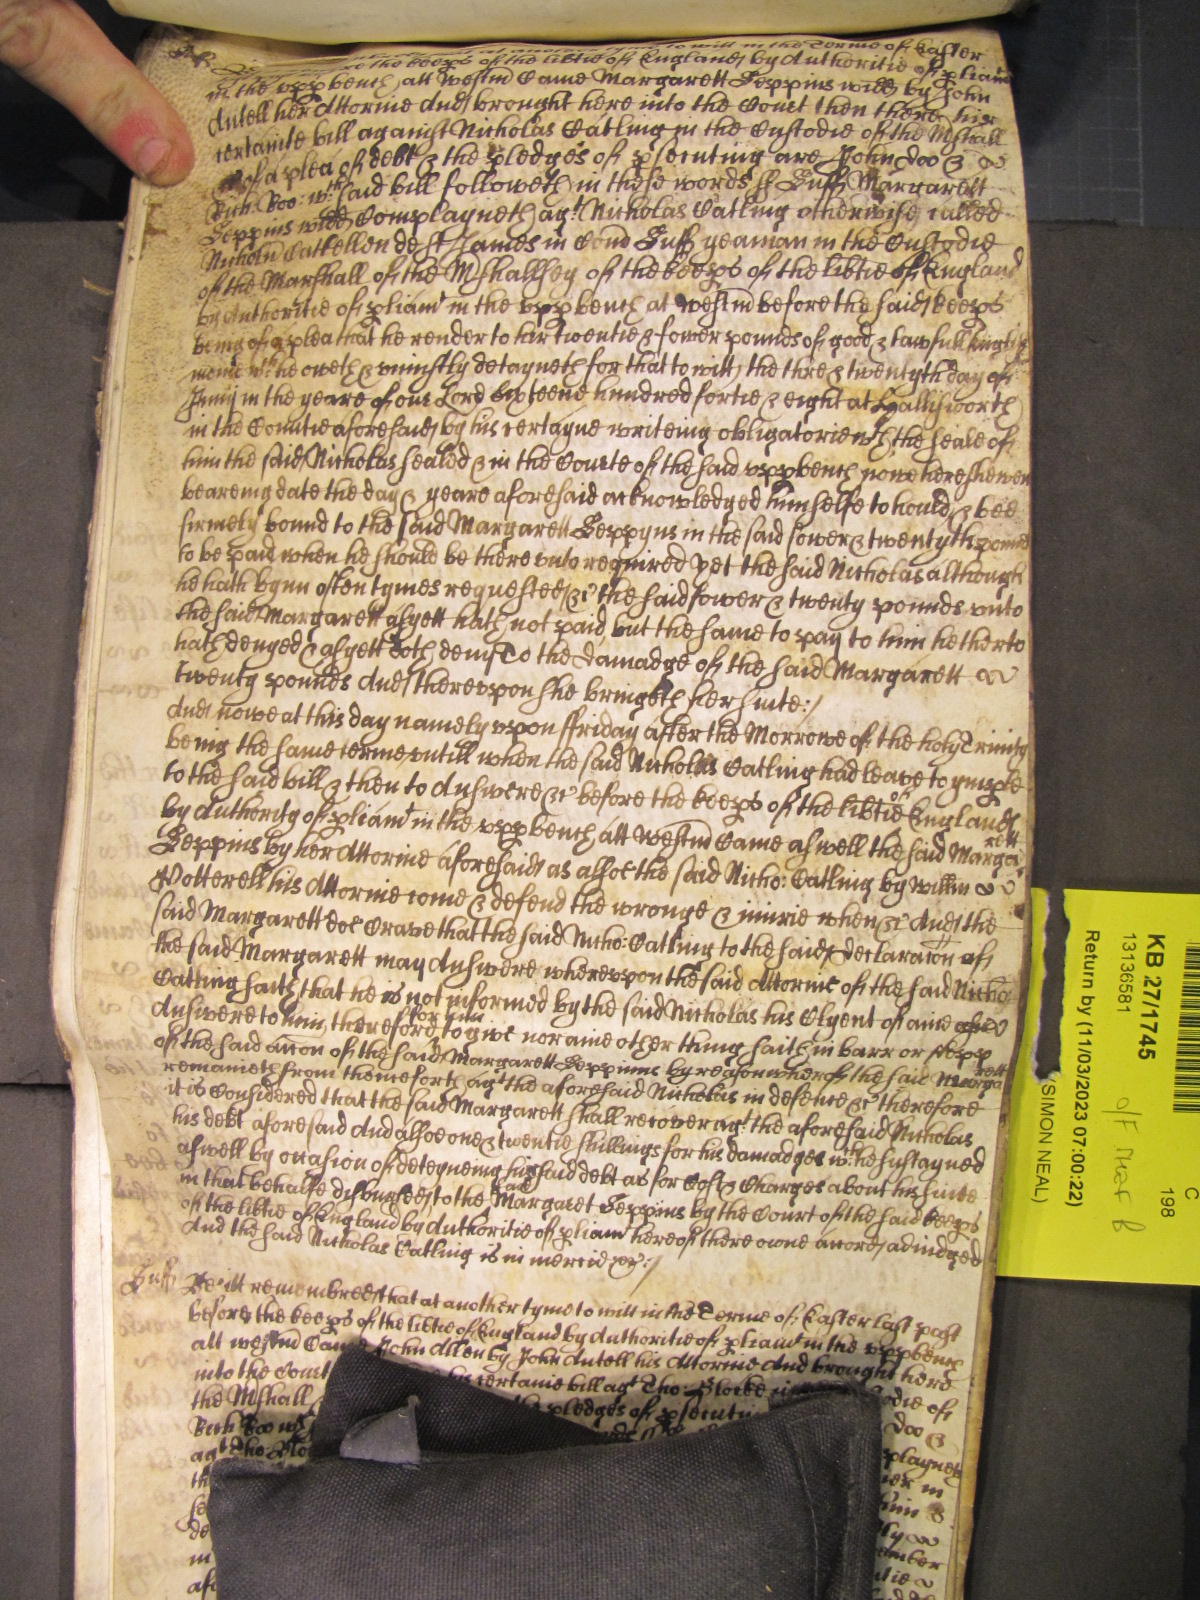 Suff
in the Terme of Easter
to the keeps of the libtie of England by Authoritie of pliamt
in the vpp bench att Westm Came Margarett Seppins widd by John
Antell her Attornie And brought here into the Court then there her
certaine bill against Nicholas Catling in the Custodie of the Mshall
&c of a plea of debt & the pledges of psecuting are John Doo &
Rich: Roo: wch said bill followeth in these words ss Suff Margarett
Seppins widd Complayneth agt Nicholas Catling otherwise called
Nicholn Cattellen de St James in Com Suff yeaman in the Custodie
of the Marshall of the Mshallsey of the keeps of the libtie of England
by Authoritie of pliamt in the vpp bench at Westm before the said keeps
being of a plea that he render to her twentie & fower pounds of good & lawfull English
monie wch he oweth & vniustly detayneth for that to witt the three & twentyth day of
in the yeare of our Lord Sixteene hundred fortie & eight at Hallisworth
in the Countie aforesaid by his certayne writeing obligatorie wth the seale of
him the said Nicholas sealed & in the Courte of the said vpp bench nowe here shewen
beareing date the day & yeare aforesaid acknowledged himselfe to hould & bee
firmely bound to the said Margarett Seppyns in the said fower & twentyth pounds
to be paid when he should be there vnto required yet the said Nicholas although
he hath bynn often tymes requested &c the said fower & twenty pounds vnto
the said Margarett asyett hath not paid but the same to pay to him hetherto
hath denyed & asyett doth deny To the damadge of the said Margarett
twenty pounds And therevpon she bringeth her suite:/
And nowe at this day namely vpon ffriday after the Morrowe of the holy Trinity
being the same terme vntill when the said Nicholas Catling had leave to ymple
to the said bill & then to Answere &c before the keeps of the libtie of England
by Authority of pliamt in the vpp bench att Westm Came aswell the said Margarett
Seppins by her Attornie aforesaid as alsoe the said Nicho: Catling by Willm
Potterell his Attornie come & defend the wronge & iniurie when &c And the
said Margarett doe Crave that the said Nicho: Catling to the said declaracon of
the said Margarett may Answere wherevpon the said Attornie of the said Nicho
Catling saith that he is not informed by the said Nicholas his Clyent of anie
Answere to him therefore to give nor anie other thing saith in barr or
of the said accon of the said Margarett Seppinns by reason whereof the said Margarett
remaineth from thenceforth agt the aforesaid Nicholas in defence &c therefore
it is Considered that the said Margarett shall recover agt the aforesaid Nicholas
his debt aforesaid And alsoe one & twentie shillings for his damadges wch he sustayned
aswell by occasion of deteyneing his said debt as for Costs & Charges about his suite
in that behalfe disbursed to the said Margaret Seppins by the Court of the said keeps
of the libtie of England by Authoritie of pliamt here of there owne accord adiudged
And the said Nicholas Catling is in mercie &c:/
Suff Be itt remembred that at another tyme to witt in the Terme of Easter last past
before the keeps of the libtie of England by Authoritie of pliamt in the vpp bench
att Westm Came John Allen by John Antell his Attornie And brought here
into the Court his certaine bill agt Tho: Blocke
the Mshall the pledges of psecuting
Rich Roo wch Doo &
agt Tho: playneth
KB 27/1745
13136581
Return by (11/03/2023 07:00:22)
(SIMON NEAL)
C
198